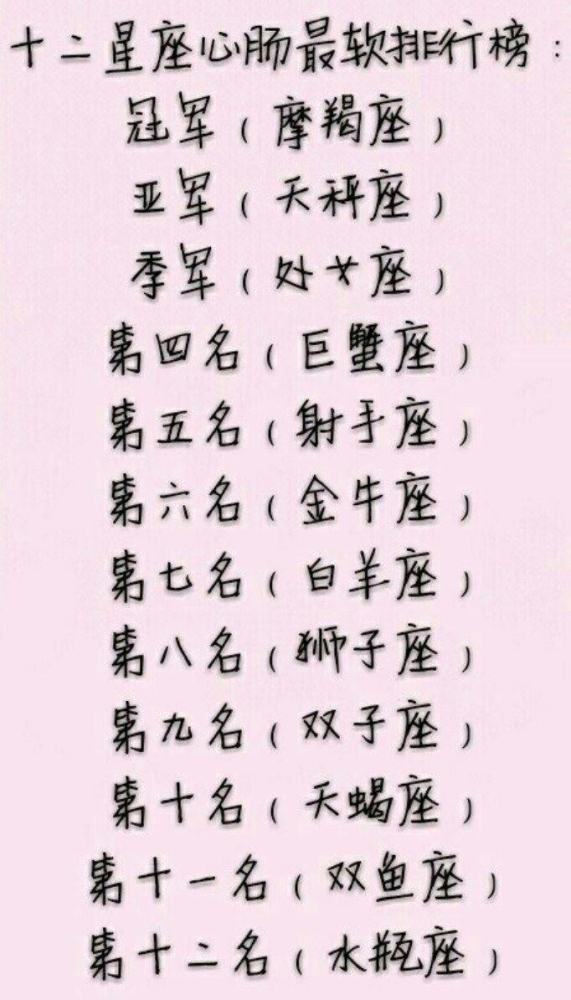 十二星座心肠最软排行榜：
冠军（摩羯座）
亚军（天秤座）
季军（处女座）
第四名（巨蟹座）
第五名（射手座）
第六名（金牛座）
第七名（白羊座）
第八名（狮子座）
第九名（双子座）
第十名（天蝎座）
第十一名（双鱼座）
第十二名（水瓶座）